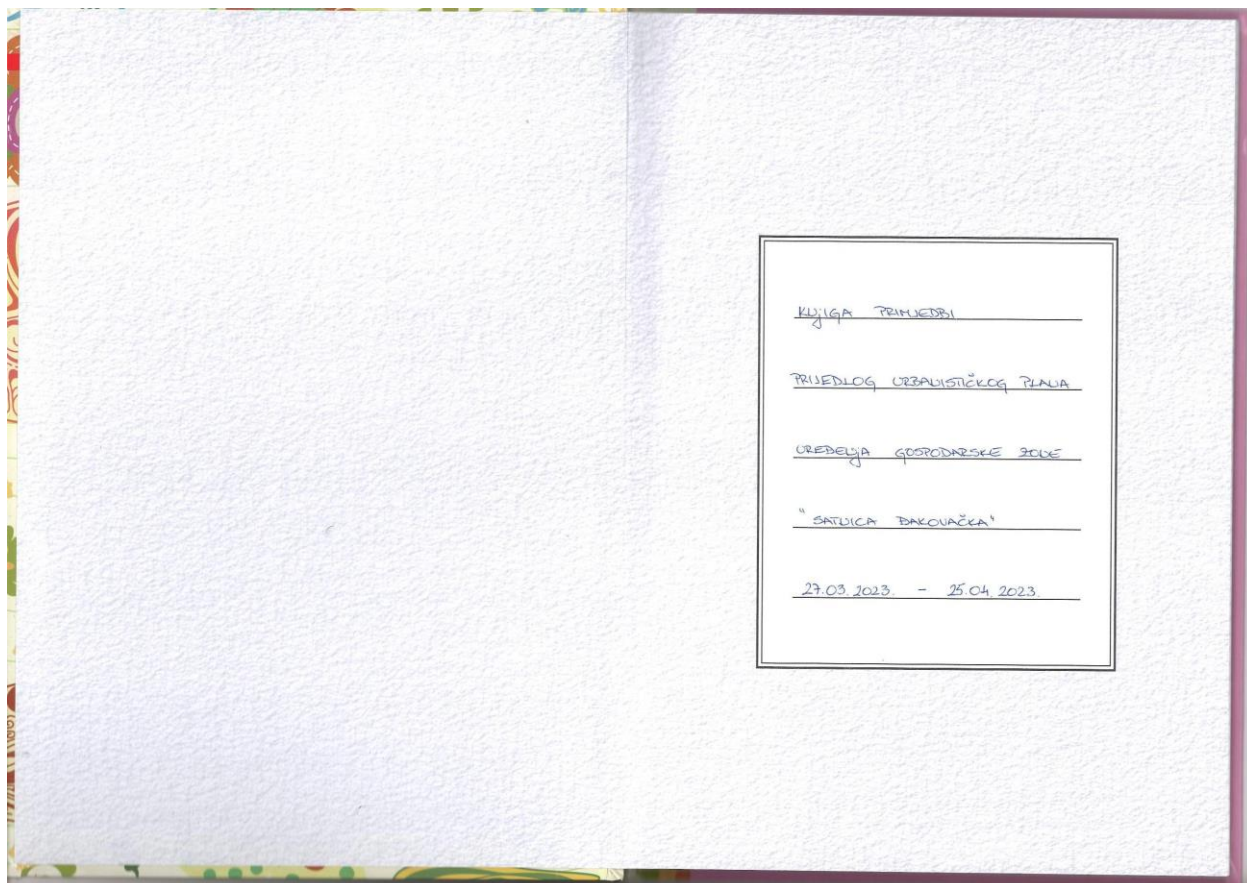 KNjIGA PRIMJEDBI
PRIJEDLOG URBANISTIČKOG PLANA
UREĐENjA GOSPODARSKE ZONE
"SATNICA ĐAKOVAČKA"
27.03.2023. - 25.04.2023.